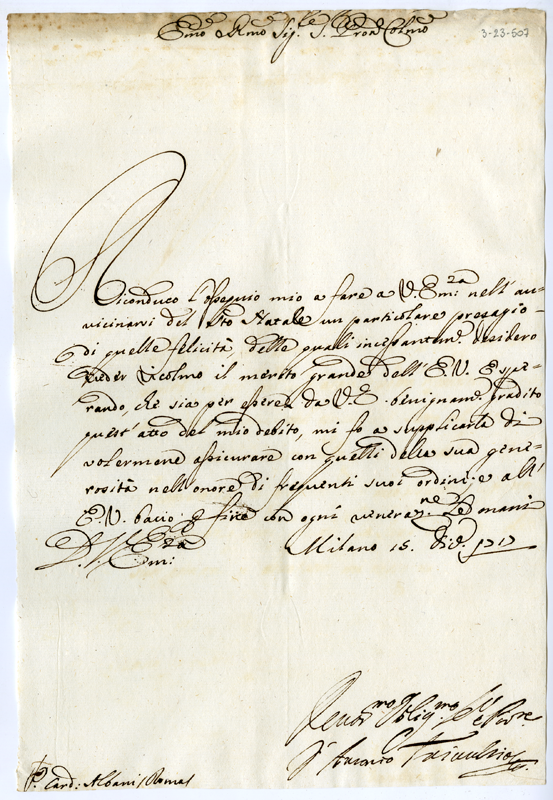 Emo e Rmo Sig.r S. Pron Colmo
3-23-507
Riconduco l'ossequio mio a fare a V. Em:za nell'au-
vicinarsi del Sto Natale un particolare presagio
di quelle felicità, delle quali incessantem.e desidero
veder ricolmo il merito grande dell'E.V. Espe-
rando, che sia per essere da V.E. benignam.e gradito
quest'atto del mio debito, mi fo a supplicarla di
volermene assicurare con quelli della sua gene-
rosità nell'onore di frequenti suoi ordini; e all'
E.V. bacio per fine con ogni veneraz.ne le mani
D. V. Em:za
Milano 15. Dic.
Obligmo
Antonio
Card: Albani Roma